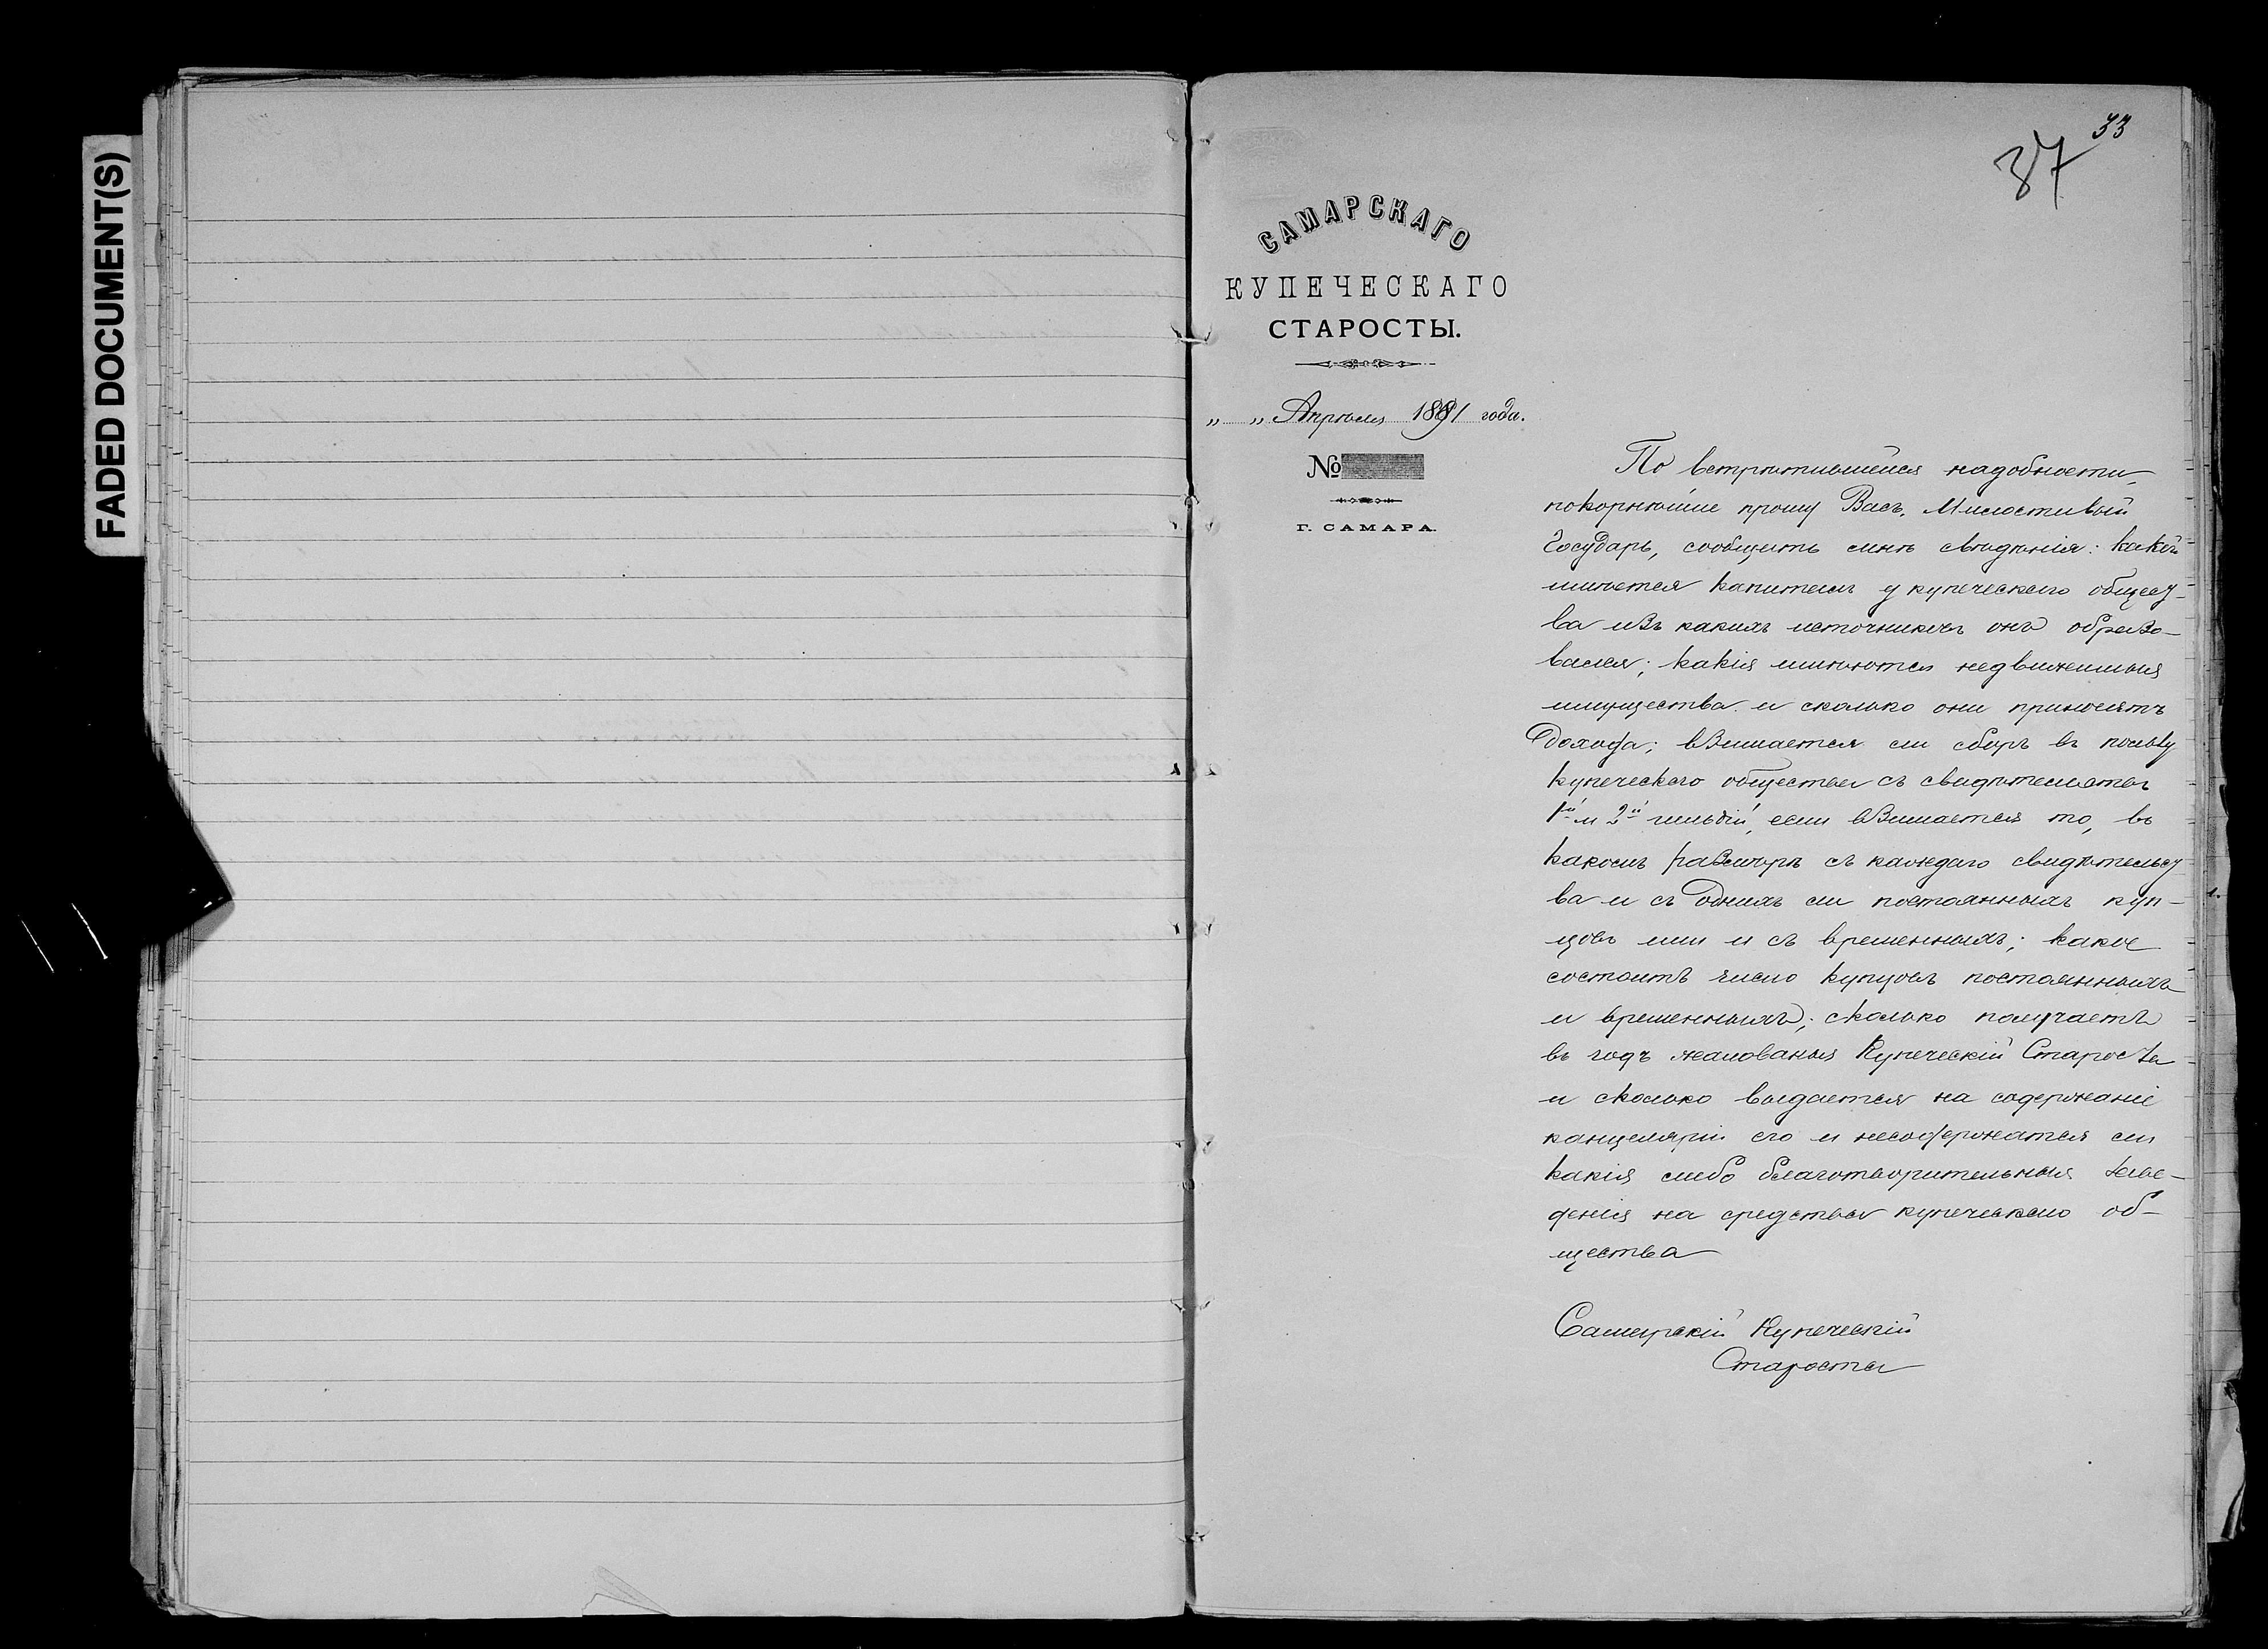 FADED DOCUMENT(S)
33
37
САМАРСКАГО
КУПЕЧЕСКАГО
СТАРОСТЫ.
„ „ Апрѣля 1891 года.
№
Г. САМАРА.
По встрѣтившейся надобности,
покорнѣйше прошу Васъ, Милостивый
Государь, сообщить мнѣ свѣдѣнія: какой
имѣется капиталъ у купеческаго общест-
ва изъ какихъ источниковъ онъ образо-
вался; какія имѣются недвижимыя
имущества и сколько они приносятъ
дохода; взимается ли сборъ въ пользу
купеческаго общества съ свидѣтельствъ
1й и 2й гильдій, если взимается то, въ
какомъ размѣрѣ съ каждаго свидѣтельст
ва и съ однихъ ли постоянныхъ куп-
цовъ или и съ временныхъ; какое
состоитъ число купцовъ постоянныхъ
и временныхъ; сколько получаетъ
въ годъ жалованья Купеческій Староста
и сколько выдается на содержаніе
канцеляріи его и несодержатся ли
какія либо благотворительныя заве-
денія на средства купеческаго об-
щества
Самарскій Купеческій
Староста